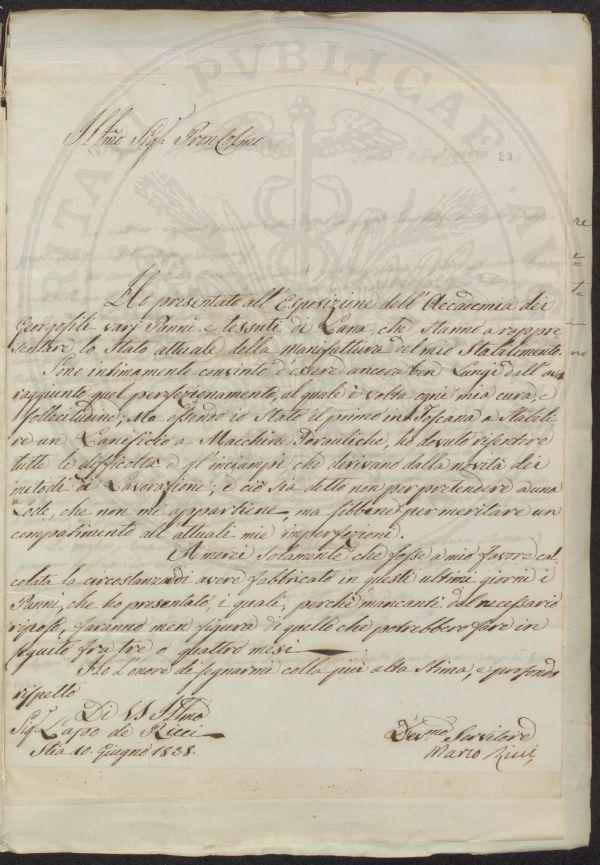 Ill.mo Sig.r Pron Colmo
29
Ho presentato all'Esposizione dell'Accademia dei
Georgofili varj Panni e tessuti di Lana, che stanno a rappre
sentare lo Stato attuale della Manifattura del mio Stabilimento.
Sono intimamente convinto d'essere ancora ben lungi dall'aver
raggiunto quel perfezionamento, al quale è volta ogni mia cura, e
sollecitudine; Ma essendo io Stato il primo in Toscana a Stabili
re un Lanificio a Macchine Idrauliche, ho dovuto risentire
tutte le difficoltà e gl'inciampi che derivano dalla novità dei
metodi di Lavorazione; e ciò sia detto non per pretendere a una
Lode, che non mi appartiene, ma sibbene per meritare un
compatimento all'attuali mie imperfezioni.
Amerei Solamente che fosse a mio favore cal
colata la circostanza di avere fabbricato in questi ultimi giorni i
Panni, che ho presentato, i quali, perchè mancanti del necessario
riposo, faranno men figura di quello che potrebbero fare in
seguito fra tre o quattro mesi.
Ho l'onore di segnarmi colla più alta Stima, e profondo
rispetto
Di VS Ill.ma
Sig.r Lapo de Ricci
Stia 10. Giugno 1838.
Dev.mo Servitore
Marco Ricci